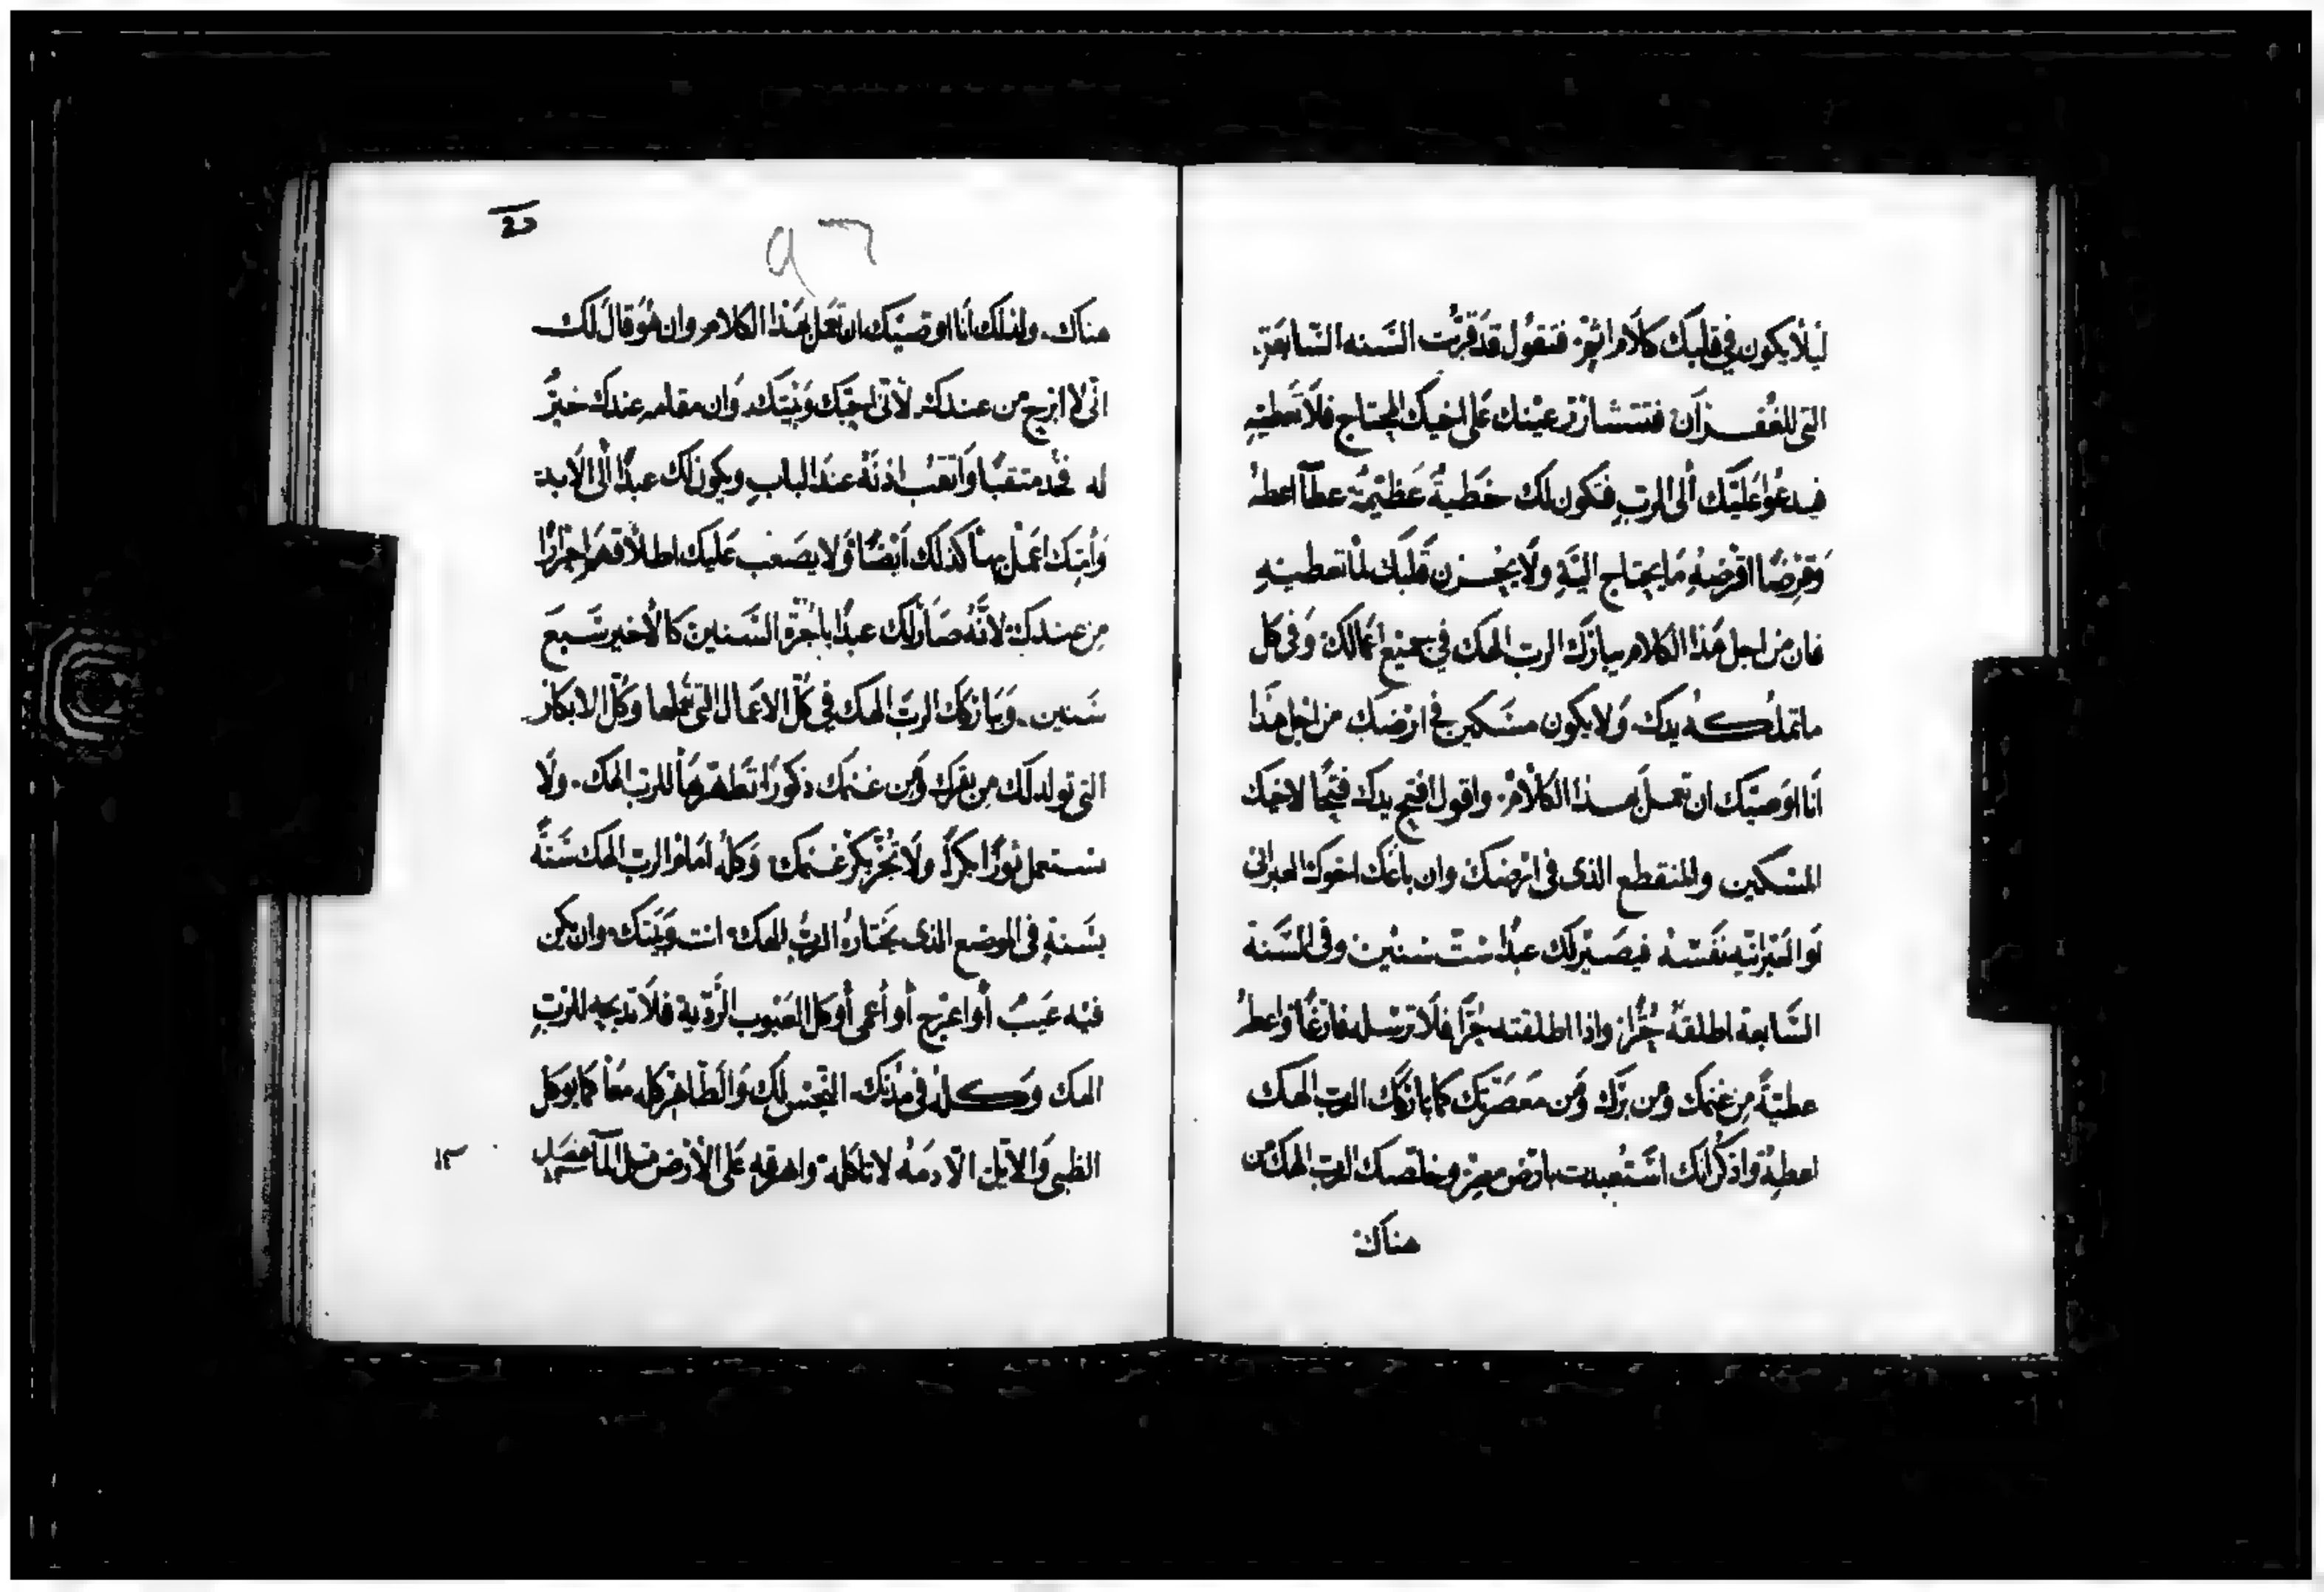 ليلا يكون في قلبك كلام اثم فتقول قد قربت السنه السابعة
التي للغفران فتتشازر عينك على اخيك المحتاج فلا تعطيه
فيدعوا عليك الى الرب فتكون لك خطية عظيمة عطآ اعطه
وقرضا اقرضه ما يحتاج اليه ولا يحزن قلبك لما تعطيه
فان من اجل هذا الكلام يبارك الرب الهك في جميع اعمالك وفي كل
ما تملكه يدك ولا يكون مسكين في ارضك من اجل هذا
انا اوصيك ان تعمل هذا الكلام واقول افتح يدك فتحا لاخيك
المسكين والمنقطع الذي في ارضك وان باعك اخوك العبراني
او العبرانيه نفسه فيصير لك عبدا ست سنين وفي السنة
السابعة اطلقه حرا واذا اطلقته حرا فلا ترسله فارغا واعطه
عطية من غنمك ومن برك ومن معصرتك كما باركك الرب الهك
اعطيه واذكر انك استعبدت بارض مصر وخلصك الرب الهك من
هناك
هناك ولذلك انا اوصيك ان تعمل هذا الكلام وان هو قال لك
اني لا ابرح من عندك لاني احبك وبيتك وان مقامه عندك خير
له فخذ متقبا واثقب اذنه عند الباب ويكون لك عبدا الى الابد
وأمتك اعمل بها كذلك ايضا ولا يصعب عليك اطلاقهم احرارا
من عندك لانه صار لك عبدا باجرة السنين كالاخير سبع
سنين ويباركك الرب الهك في كل الاعمال التي تعملها وكل الابكار
التي تولد لك من بقرك ومن غنمك ذكورا تطهرها للرب الهك ولا
تستعمل ثورا بكرا ولا تجز بكر غنمك وكله امام الرب الهك سنة
بسنة في الموضع الذي يختاره الرب الهك انت وبيتك وان يكن
فيه عيب أو اعرج أو أعمى أو كل العيوب الردية فلا تذبحه للرب
الهك وكله في مدنك النجس لك والطاهر كله معا كما يوكل
الظبي والايل الا دمه لا تاكله واهرقه على الارض مثل المآ فصل